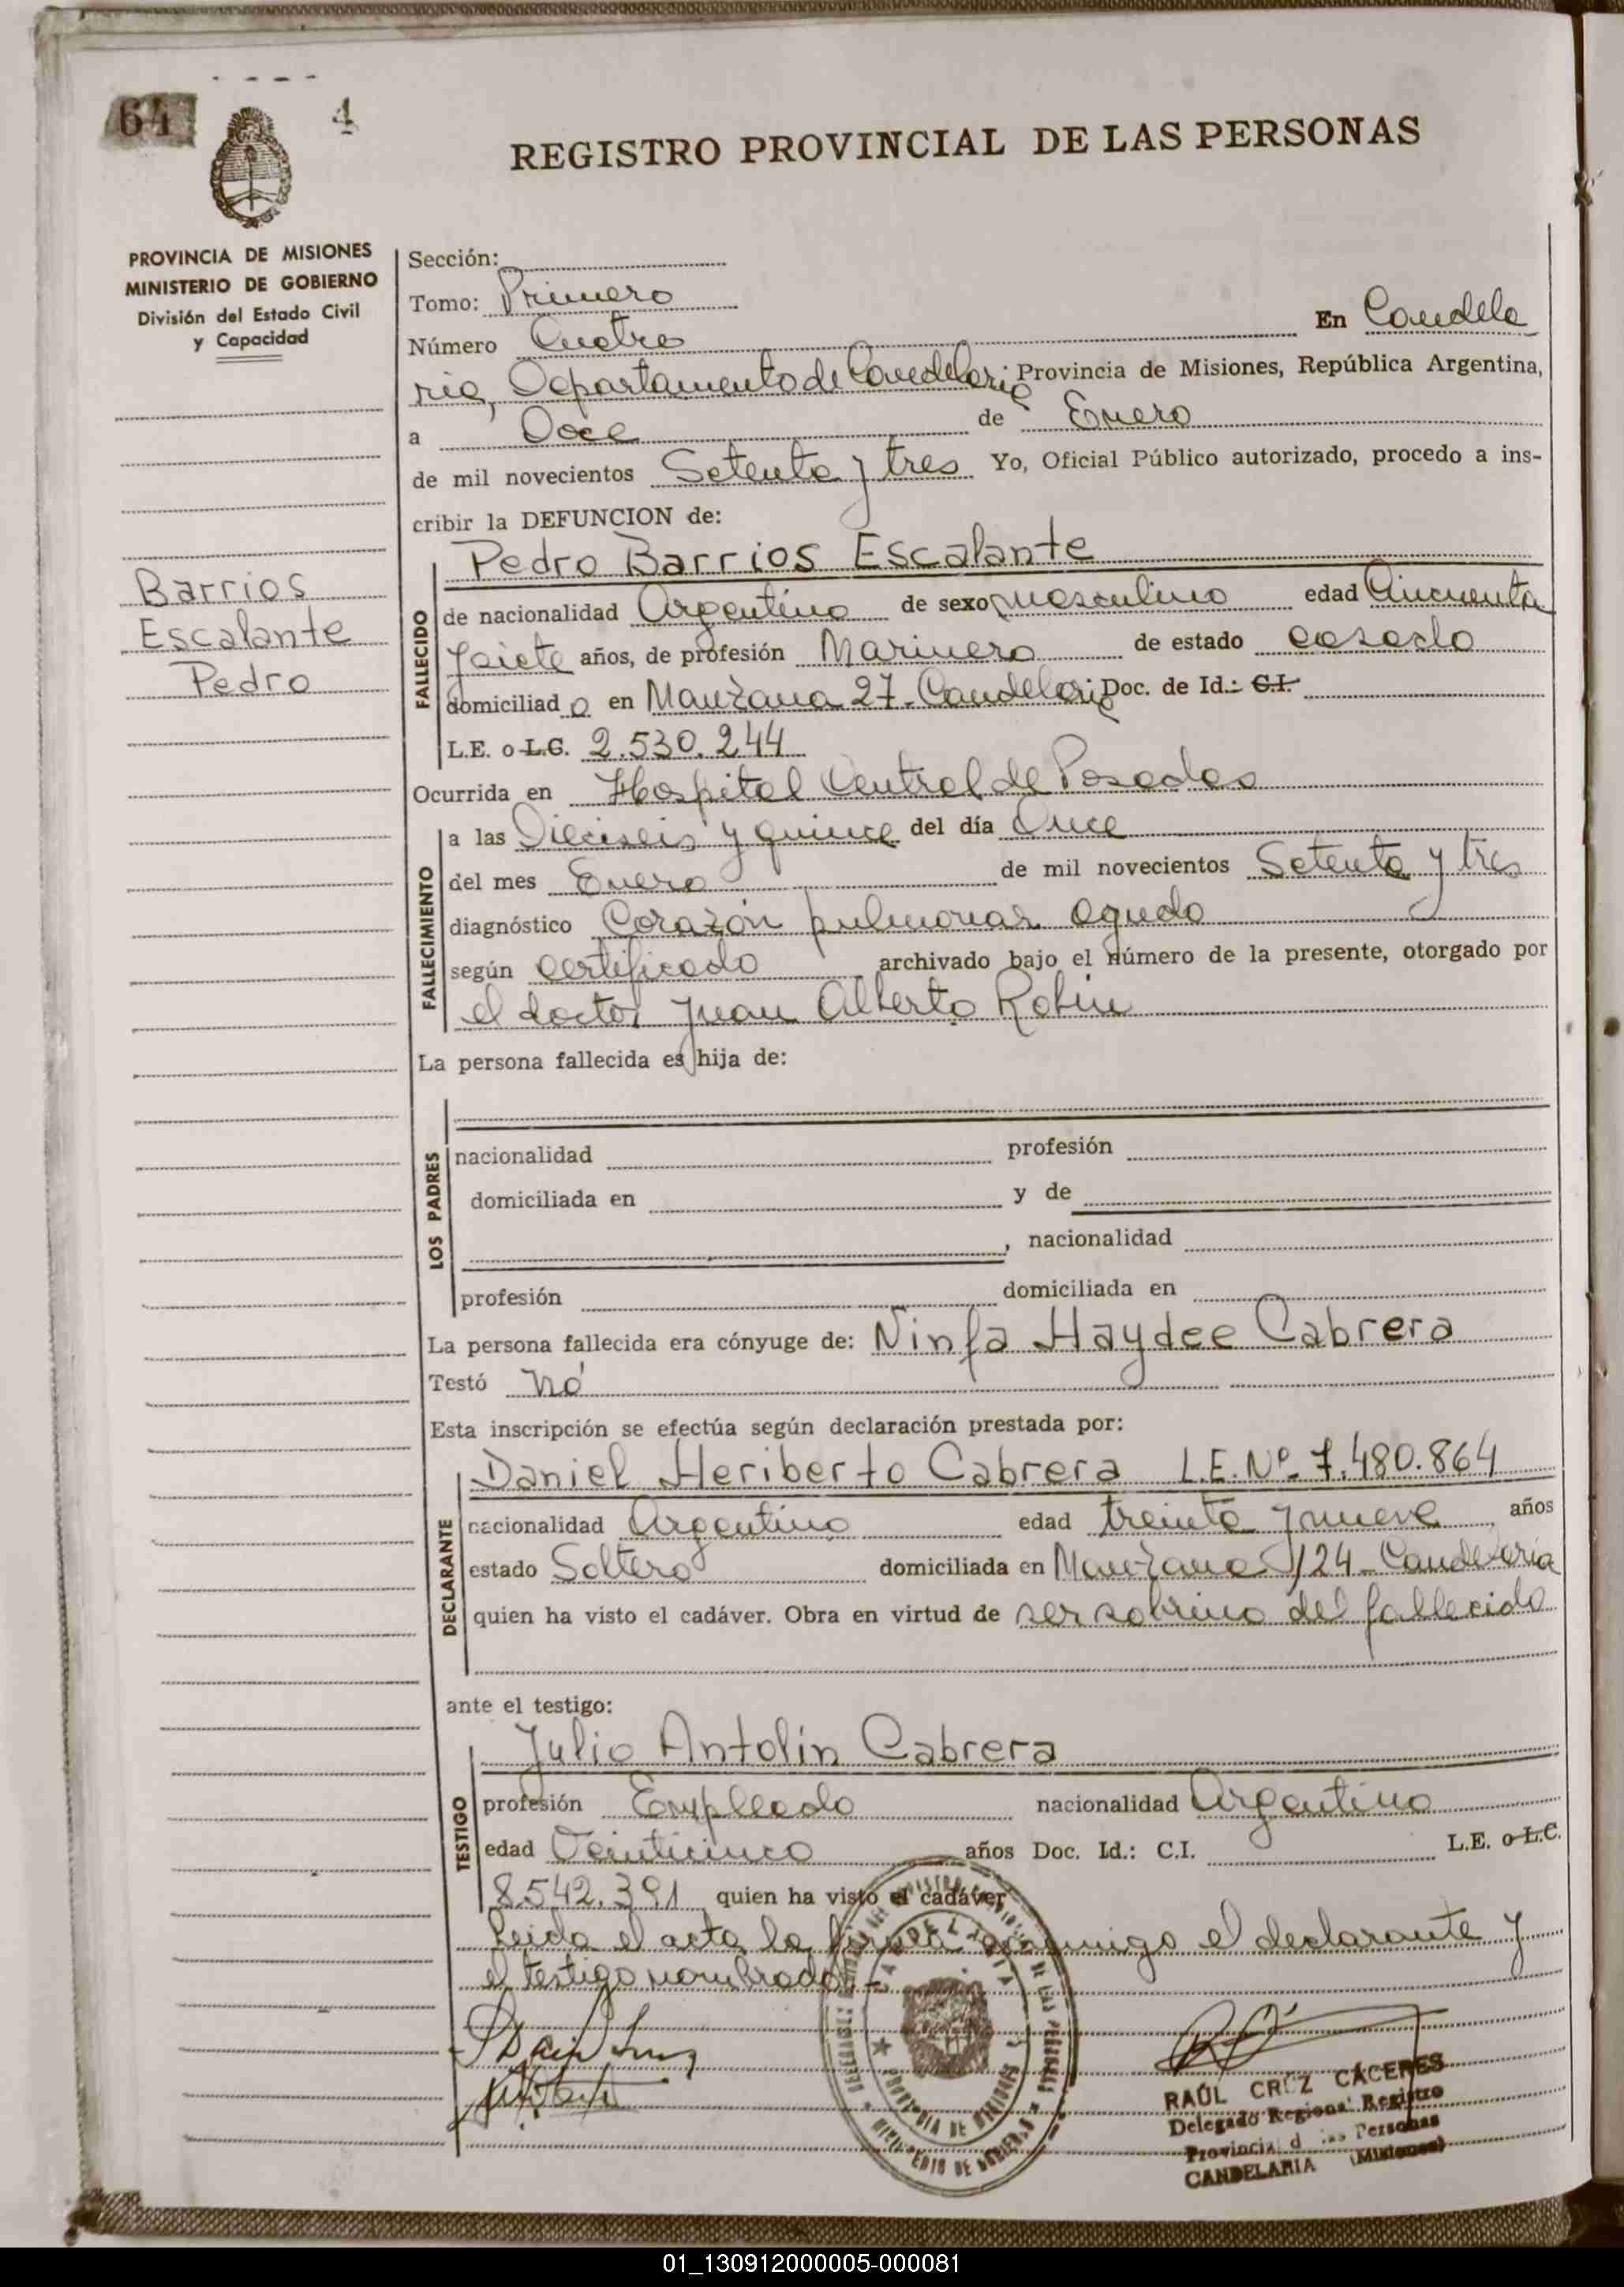 64
4
REGISTRO PROVINCIAL DE LAS PERSONAS
PROVINCIA DE MISIONES
MINISTERIO DE GOBIERNO
División del Estado Civil
y Capacidad
Barrios
Escalante
Pedro
Sección:
Tomo: Primero
Número Cuatro En Candela
ria, Departamento de Candelaria Provincia de Misiones, República Argentina,
a Doce de Enero
de mil novecientos Setenta y tres Yo, Oficial Público autorizado, procedo a ins-
cribir la DEFUNCION de:
FALLECIDO
Pedro Barrios Escalante
de nacionalidad Argentino de sexo masculino edad Cincuenta
y siete años, de profesión Marinero de estado casado
domiciliado en Manzana 27-Candelaria Doc. de Id.: C.I.
L.E. o L.C. 2.530.244
Ocurrida en Hospital Central de Posadas
FALLECIMIENTO
a las Dieciseis y quince del día Once
del mes Enero de mil novecientos Setenta y tres
diagnóstico Corazón pulmonar agudo
según certificado archivado bajo el número de la presente, otorgado por
el doctor Juan Alberto Robin
La persona fallecida es hija de:
LOS PADRES
nacionalidad profesión
domiciliada en y de
, nacionalidad
profesión domiciliada en
La persona fallecida era cónyuge de: Ninfa Haydee Cabrera
Testó nó
Esta inscripción se efectúa según declaración prestada por:
DECLARANTE
Daniel Heriberto Cabrera L.E. Nº 7.480.864
nacionalidad Argentino edad treinta y nueve años
estado Soltero domiciliada en Manzana 124-Candelaria
quien ha visto el cadáver. Obra en virtud de ser sobrino del fallecido
ante el testigo:
TESTIGO
Julio Antolín Cabrera
profesión Empleado nacionalidad Argentino
edad Veinticinco años Doc. Id.: C.I. L.E. o L.C.
8.542.391 quien ha visto el cadáver
Leida el acta la firman conmigo el declarante y
el testigo nombrado.-
CANDELARIA
PROVINCIA DE MISIONES
MINISTERIO DE GOBIERNO
RAÚL CRUZ CÁCERES
Delegado Regional Registro
Provincial de las Personas
CANDELARIA (Misiones)
01_130912000005-000081